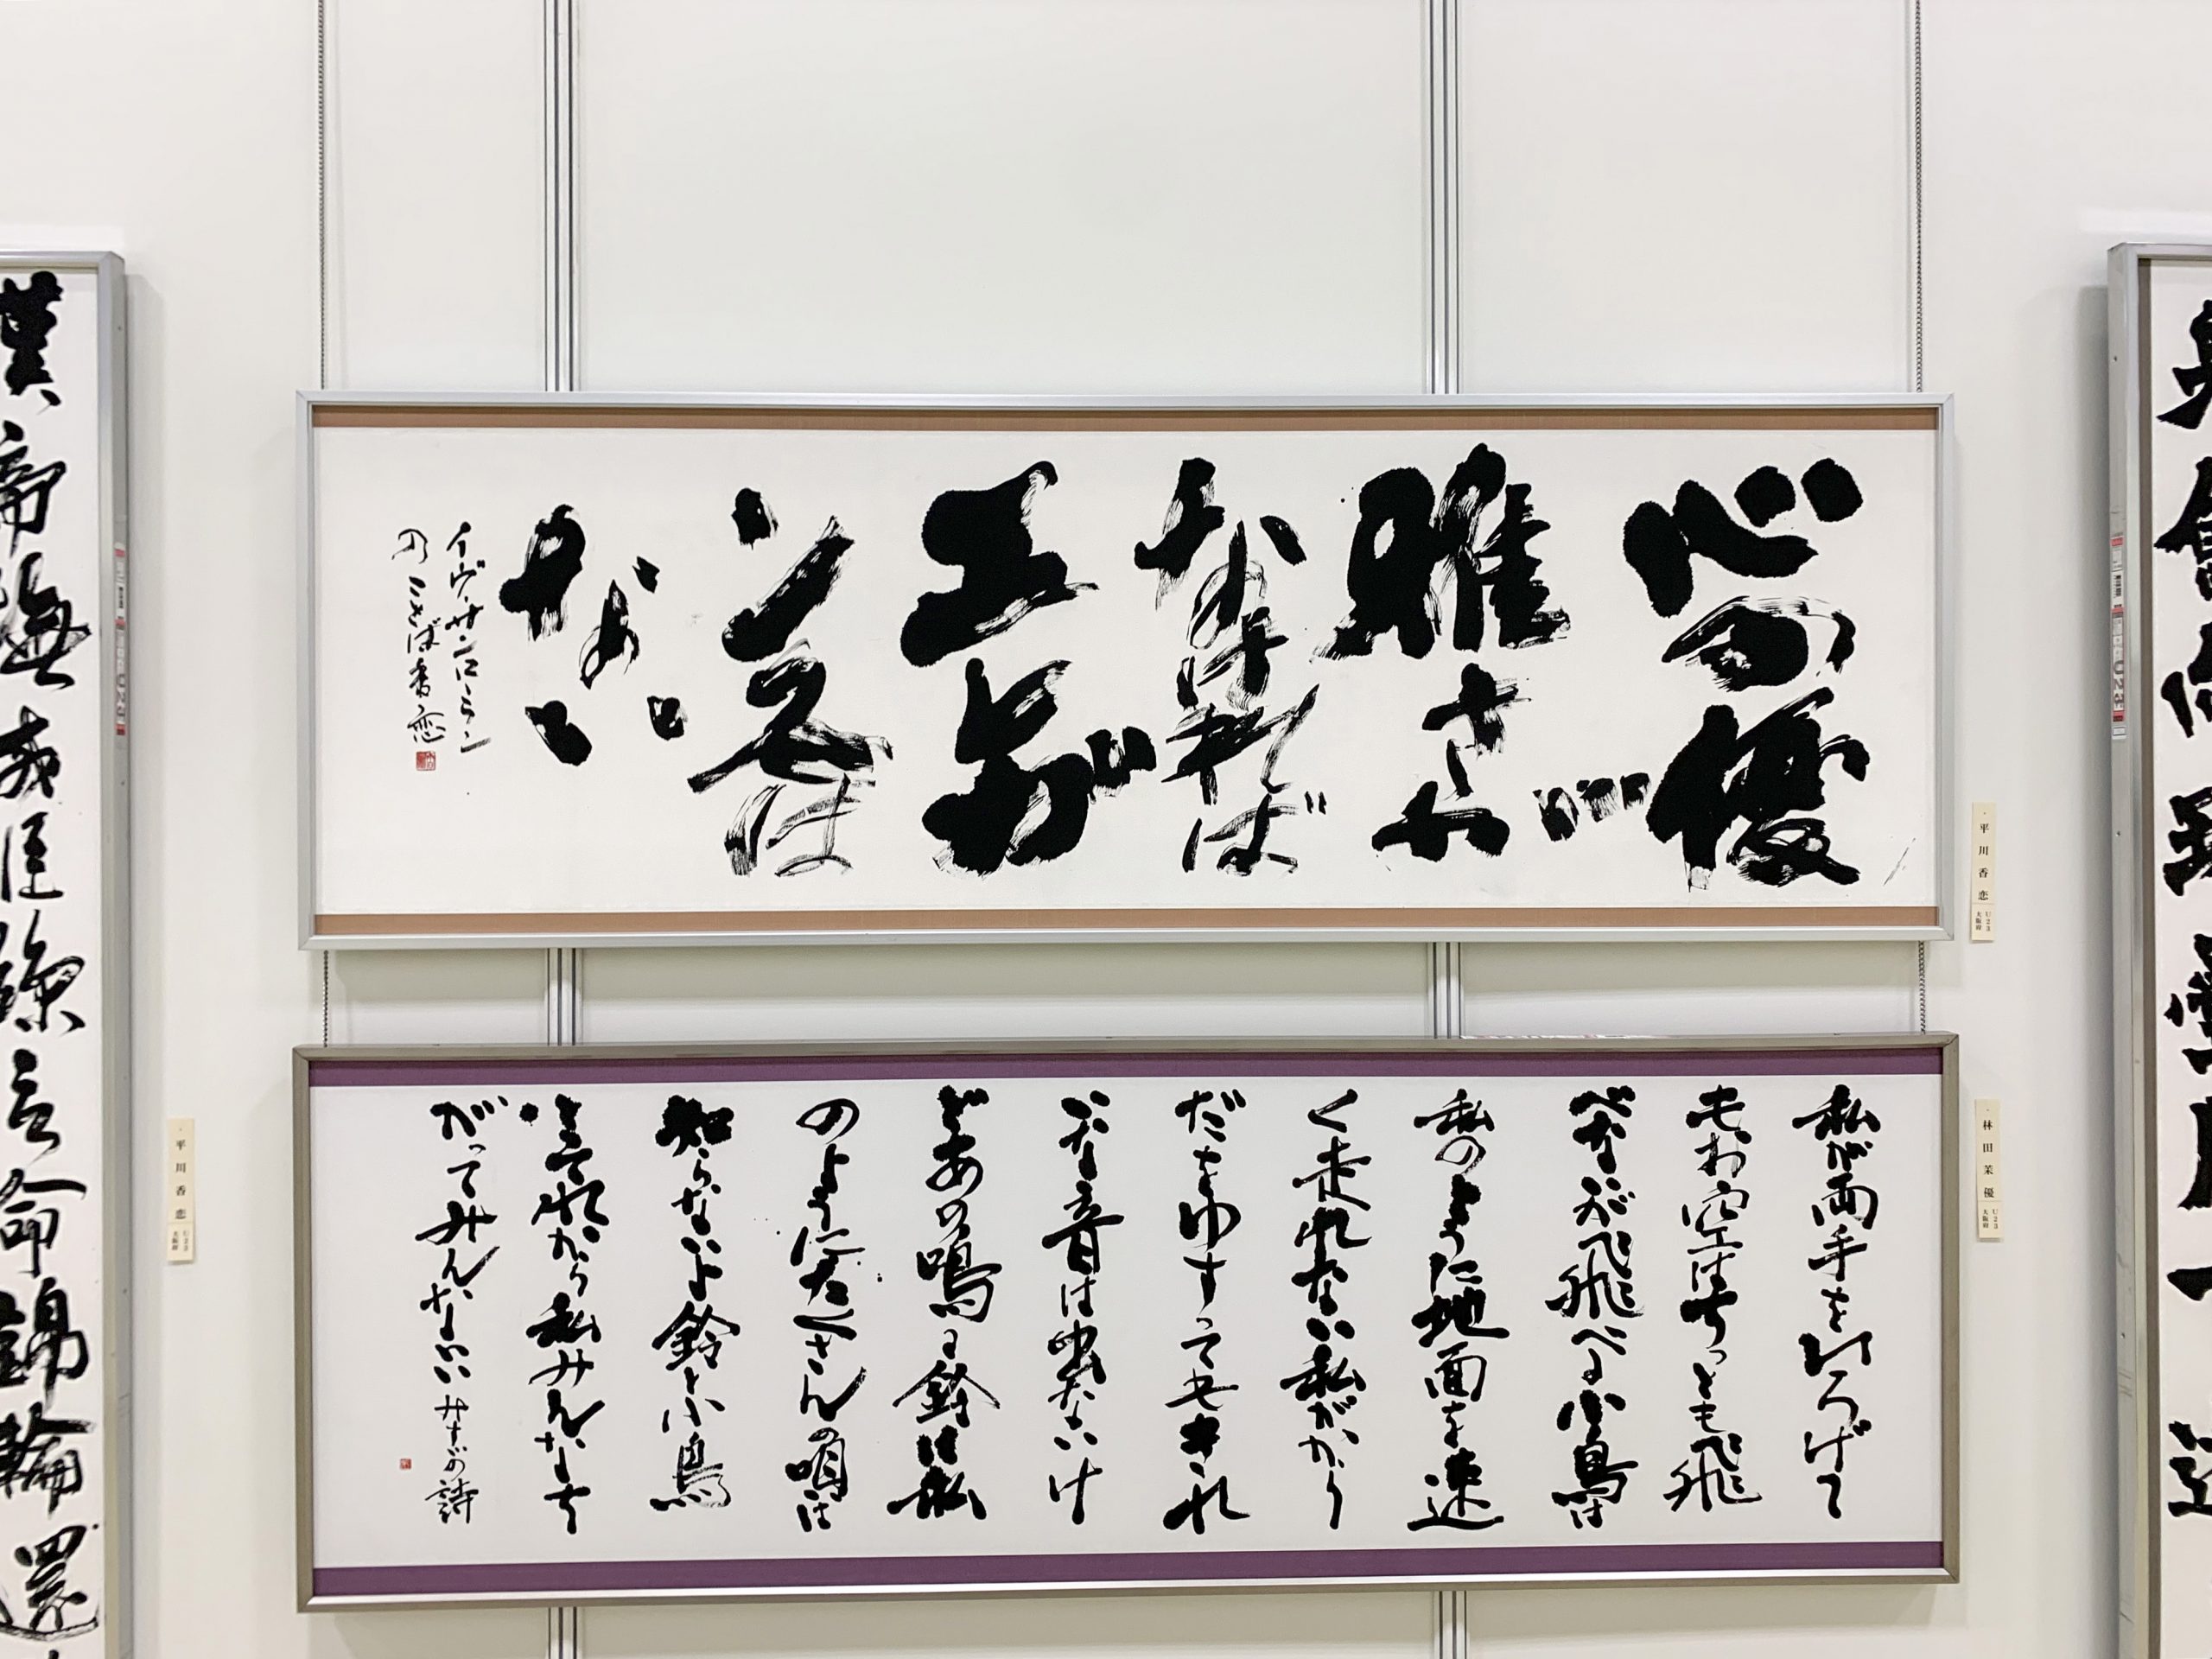 心の優
雅さが
なければ
エレガ
ンスは
ない
イヴ・サンローラン
のことば 香恋
平川香恋
U23
大阪府
私が両手をひろげて
もお空はちっとも飛
べないが飛べる小鳥は
私のように地面を速
く走れない私がから
だをゆすってもきれ
いな音は出ないけ
どあの鳴る鈴は私
のようにたくさんの唄は
知らないよ鈴と小鳥
とそれから私みんなち
がってみんないい みすゞの詩
林田茉優
U23
大阪府
漢帝撫戎臣絲言命錦輪還
平川香恋
U23
大阪府